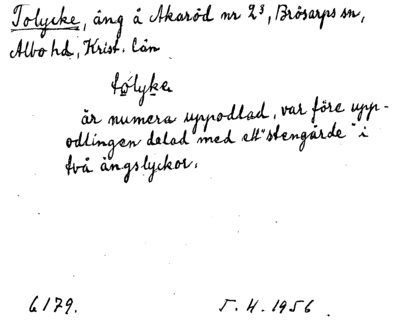 Tolycke, äng å Akaröd nr 2³, Brösarps sn,
Albo hd, Krist. län
tólyke
är numera uppodlad, var före upp-
odlingen delad med ett "stengärde" i
två ängslyckor.
6179. 5.4.1956.